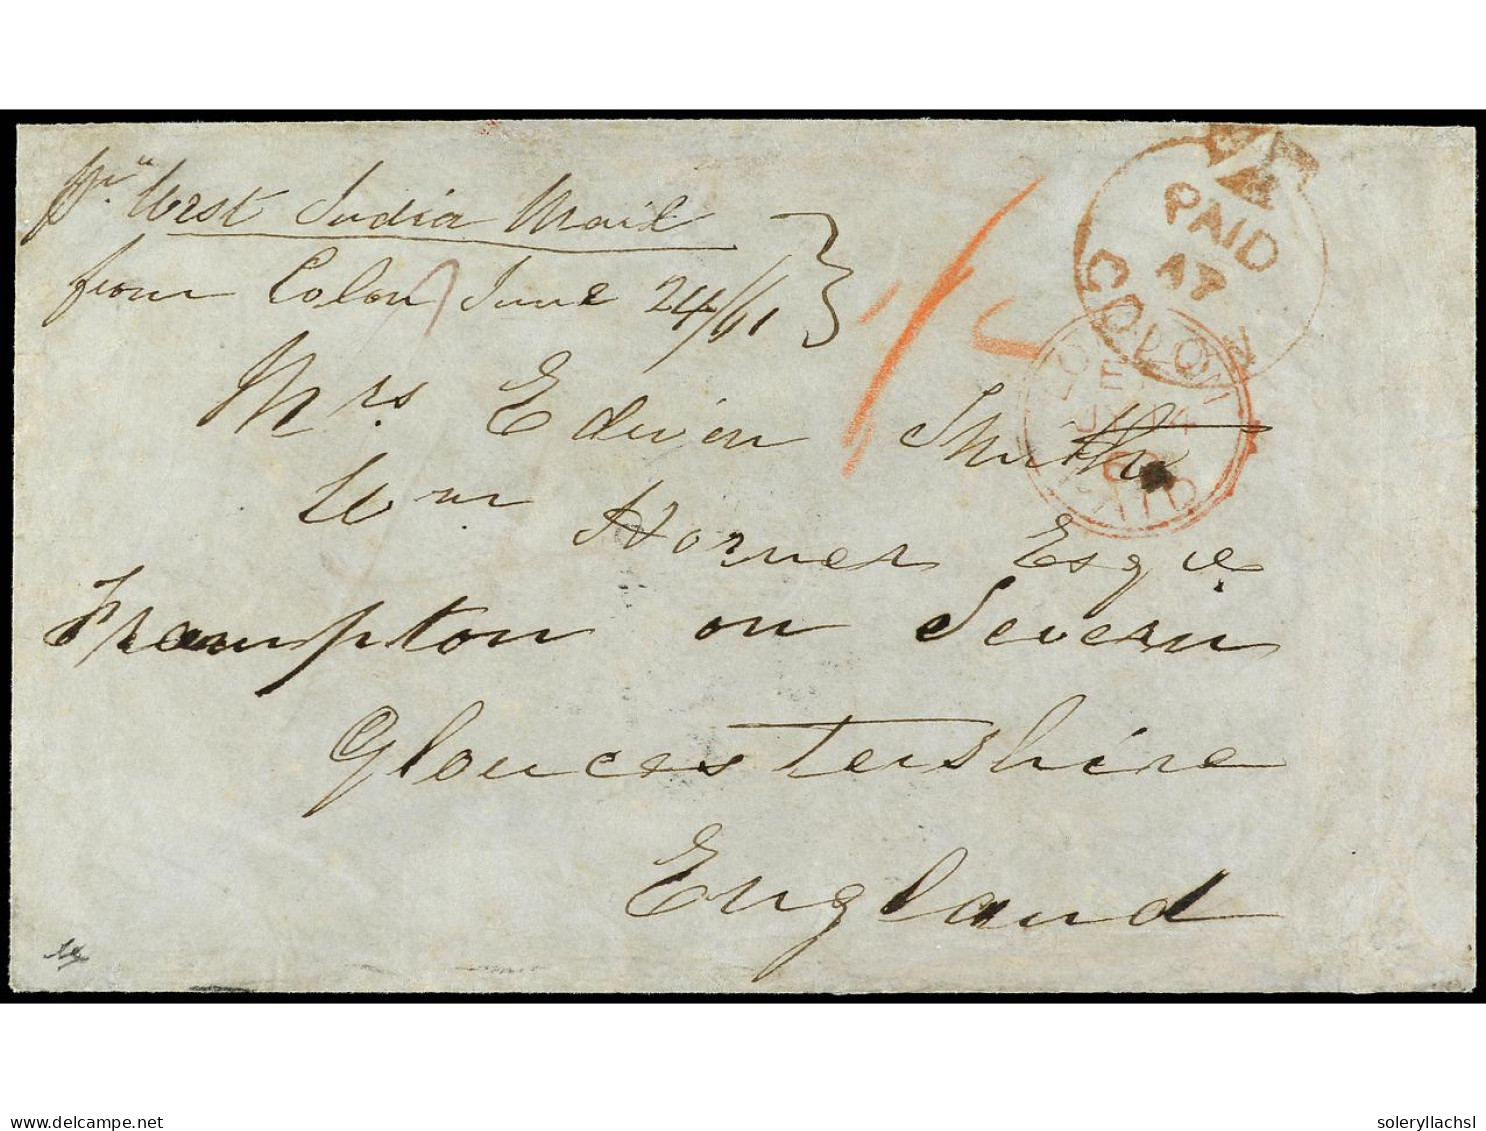 Pr. West India Mail
from Colon June 24/61
1/-
PAID
AT
COLON
LONDON
PAID
Mrs Edwin
Wm Horner Esqre
Frampton on Severn
Gloucestershire
England
www.delcampe.net
soleryllachsl